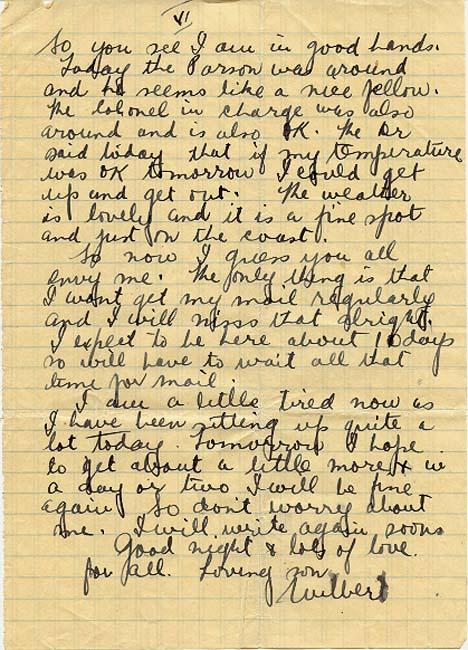 VI
So you see I am in good hands.
Today the Parson was around
and he seems like a nice fellow.
The Colonel in charge was also
around and is also OK. The Dr
said today that if my temperature
was OK tomorrow I could get
up and get out. The weather
is lovely and it is a fine spot
and just on the coast.
So now I guess you all
envy me. The only thing is that
I wont get my mail regularly
and I will miss that alright.
I expect to be here about 10 days
so will have to wait all that
time for mail.
I am a little tired now as
I have been sitting up quite a
lot today. Tomorrow I hope
to get about a little more & in
a day or two I will be fine
again so don't worry about
me. I will write again soons
Good night & lots of love
for all. Loving son
Wilbert